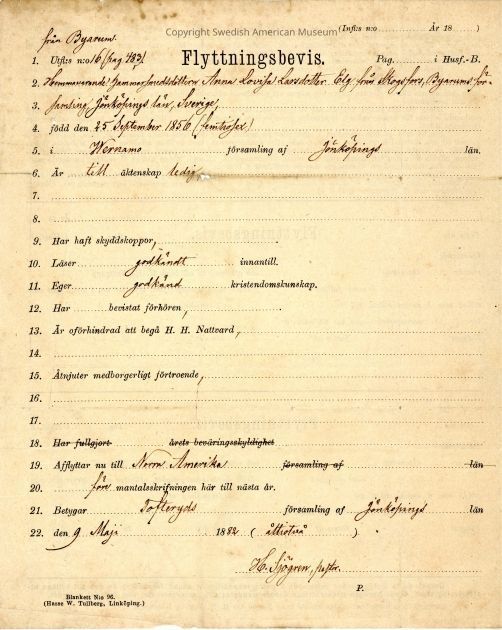 Copyright Swedish American Museum
(Infl:s n:o År 18 )
från Byarum.
Flyttningsbevis.
1. Utfl:s n:o 16 (pag 403) Pag. i Husf.-B.
2. Hemmavarande Hammarsmedsdottern Anna Lovisa Larsdotter Elg från Skogsfors, Byarums för-
3. samling, Jönköpings län, Sverige,
4. född den 25 September 1856 (femtiosex)
5. i Wernamo församling af Jönköpings län.
6. Är till äktenskap ledig
7.
8.
9. Har haft skyddskoppor,
10. Läser godkändt innantill.
11. Eger godkänd kristendomskunskap.
12. Har bevistat förhören,
13. Är oförhindrad att begå H. H. Nattvard,
14.
15. Åtnjuter medborgerligt förtroende,
16.
17.
18. Har fullgjort årets beväringsskyldighet
19. Afflyttar nu till Norra Amerika församling af län
20. före mantalsskrifningen här till nästa år.
21. Betygar Tofteryds församling af Jönköpings län
22. den 9 Maji 1882 ( åttiotvå )
H. Sjögren, pastor.
P.
Blankett N:o 96.
(Hasse W. Tullberg, Linköping.)